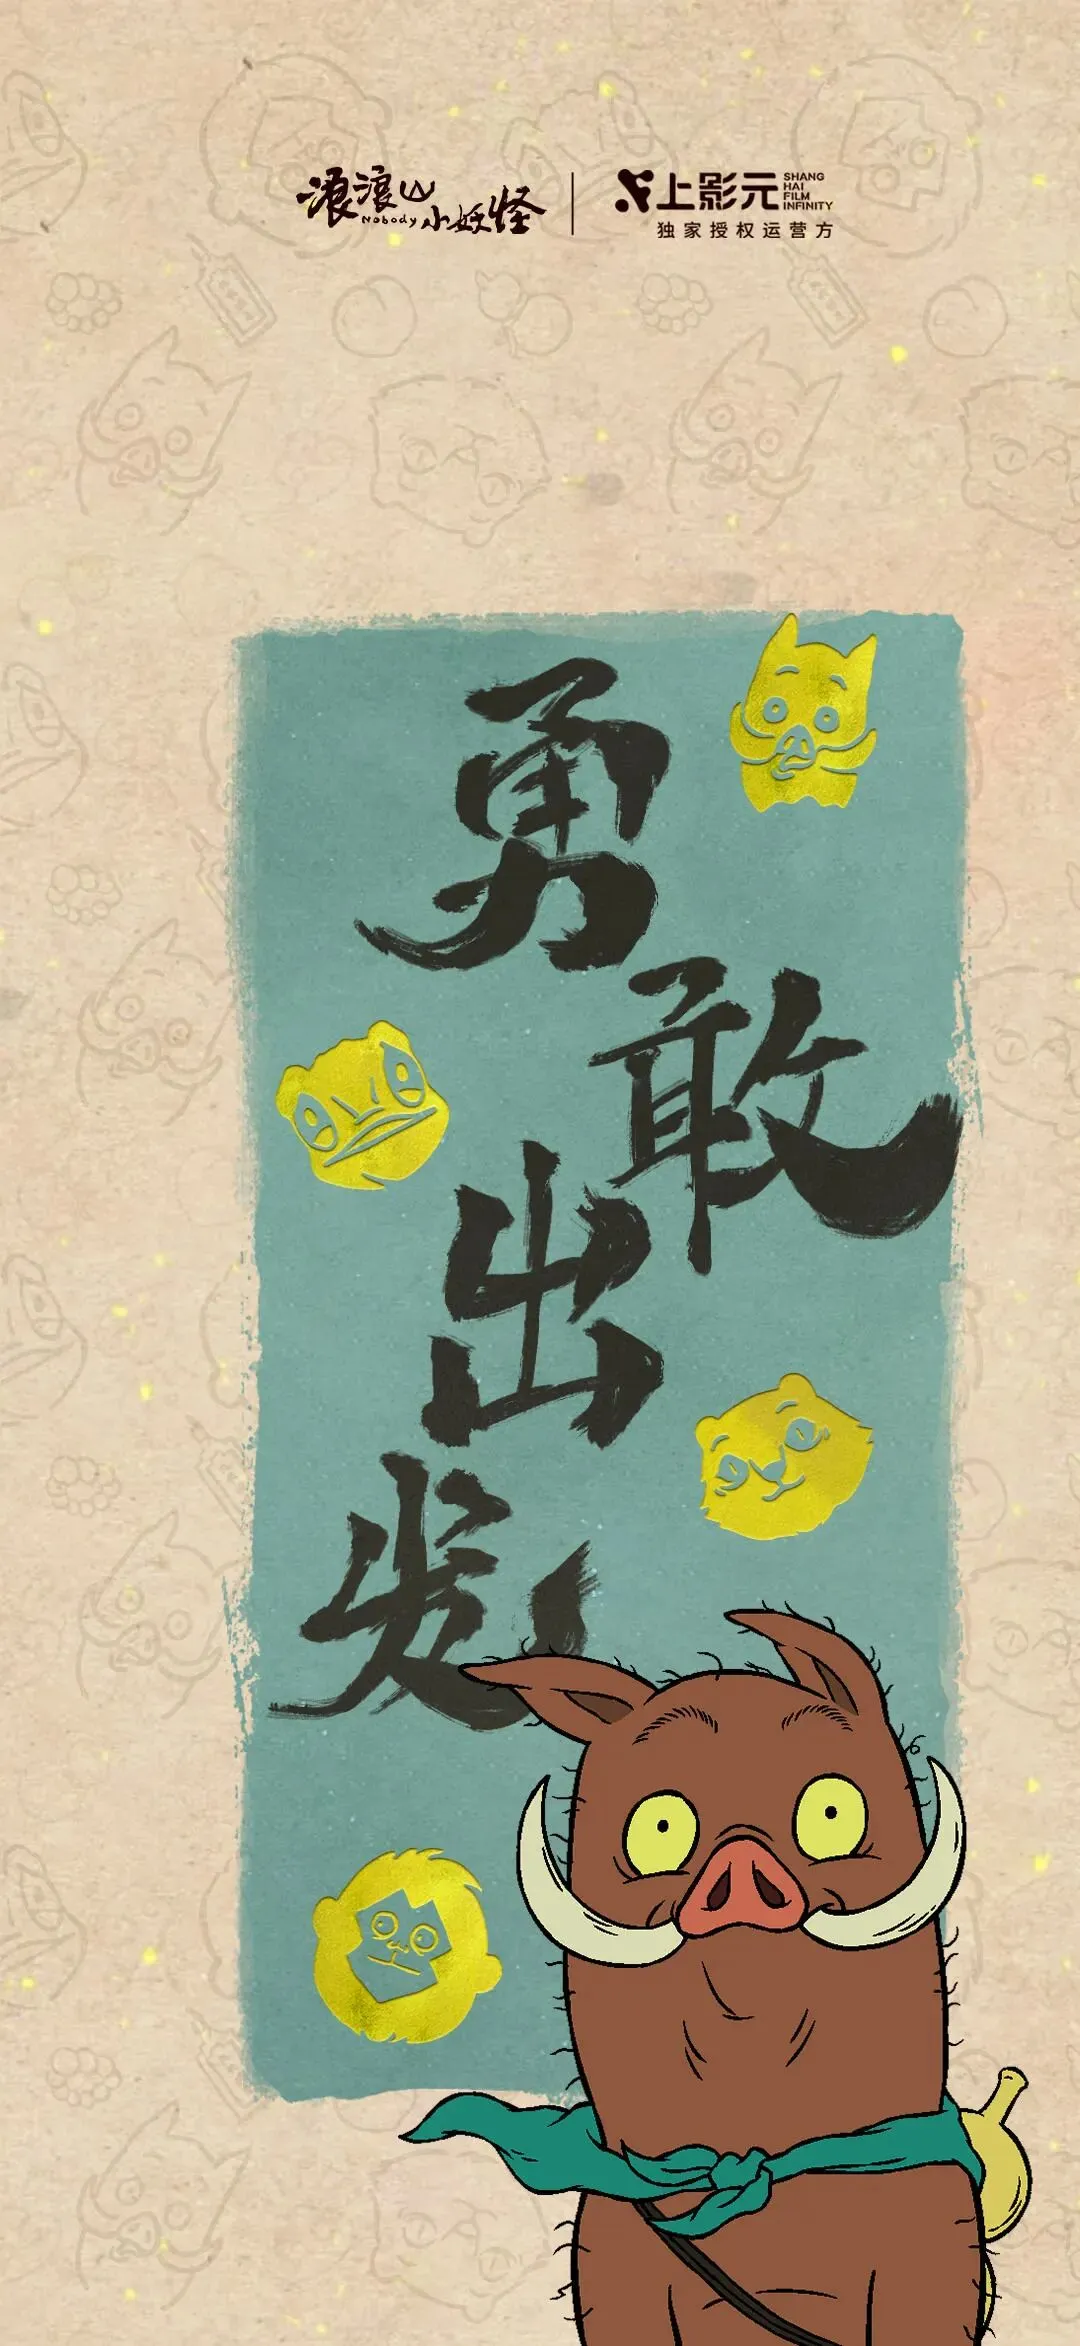 浪浪山
Nobody 小妖怪
上影元 SHANG
HAI
FILM
INFINITY
独家授权运营方
勇
敢
出
发